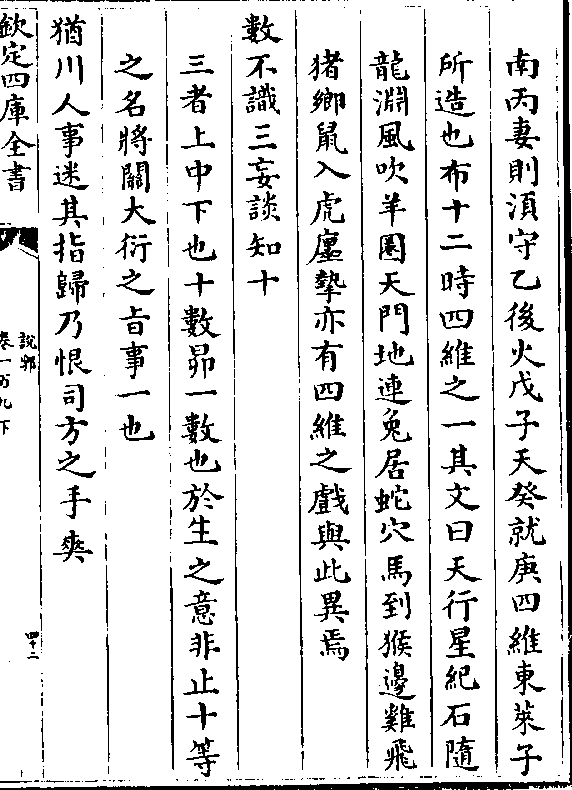 南丙妻則須守乙後火戊子天癸就庚四維東萊子
所造也布十二時四維之一其文曰天行星紀石隨
龍淵風吹羊圏天門地連兔居蛇穴馬到猴邊雞飛
猪鄉鼠入虎廛摯亦有四維之戲與此異焉
數不識三妄談知十
三者上中下也十數昴一數也於生之意非止十等
之名將關大衍之旨事一也
猶川人事迷其指歸乃恨司方之手爽
欽定四庫全書
說郛
卷一百九下
四十二